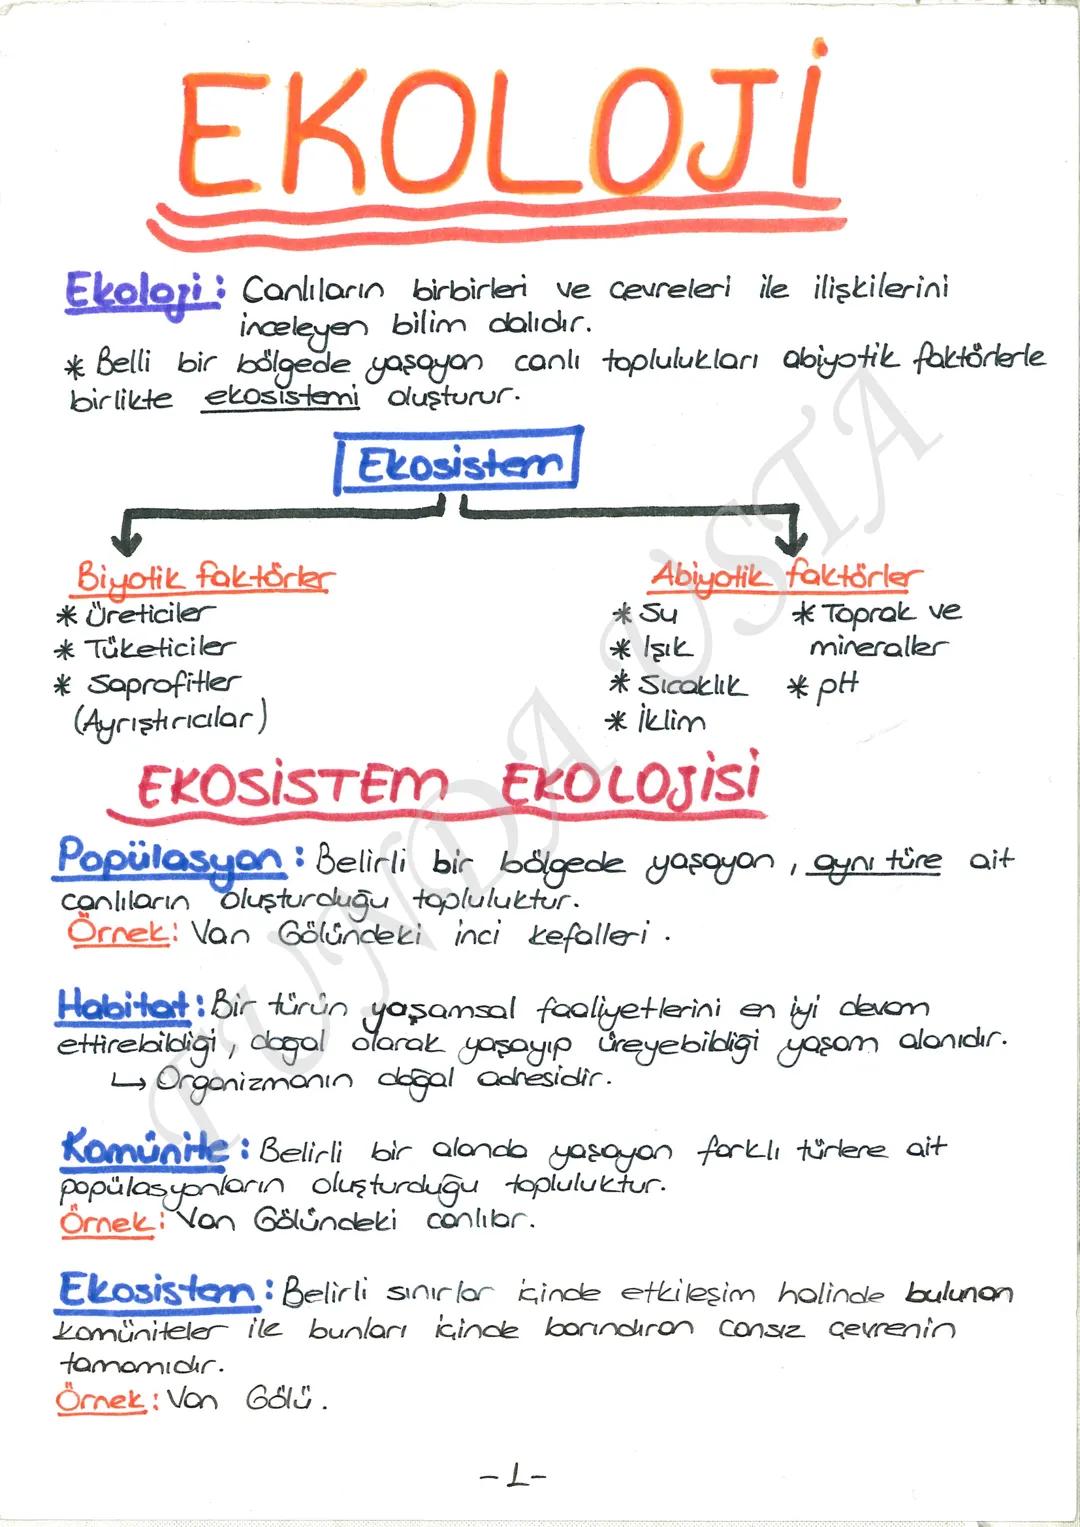 EKOLOJİ
Ekoloji: Canlıların birbirleri ve çevreleri ile ilişkilerini
inceleyen bilim dalıdır.
* Belli bir bölgede yaşayan canlı toplulukları abiyotik faktörlerle
birlikte ekosistemi oluşturur.
Ekosistem
Biyotik faktörler
* Üreticiler
* Tüketiciler
* Saprofitler
(Ayrıştırıcılar)
Abiyotik faktörler
* Su * Toprak ve
* Işık mineraller
* Sıcaklık * pH
* İklim
EKOSİSTEM EKOLOJİSİ
Popülasyon: Belirli bir bölgede yaşayan, aynı türe ait
canlıların oluşturduğu topluluktur.
Örnek: Van Gölündeki inci kefalleri.
Habitat: Bir türün yaşamsal faaliyetlerini en iyi devam
ettirebildiği, dogal olarak yaşayıp üreyebildiği yaşam alanıdır.
↳ Organizmanın doğal adresidir.
Komünite: Belirli bir alanda yaşayan farklı türlere ait
popülasyonların oluşturduğu topluluktur.
Örnek: Van Gölündeki canlılar.
Ekosistem: Belirli sınırlar içinde etkileşim halinde bulunan
komüniteler ile bunları içinde barındıran cansız çevrenin
tamamıdır.
Örnek: Van Gölü.
-1-
FUNDA USTA